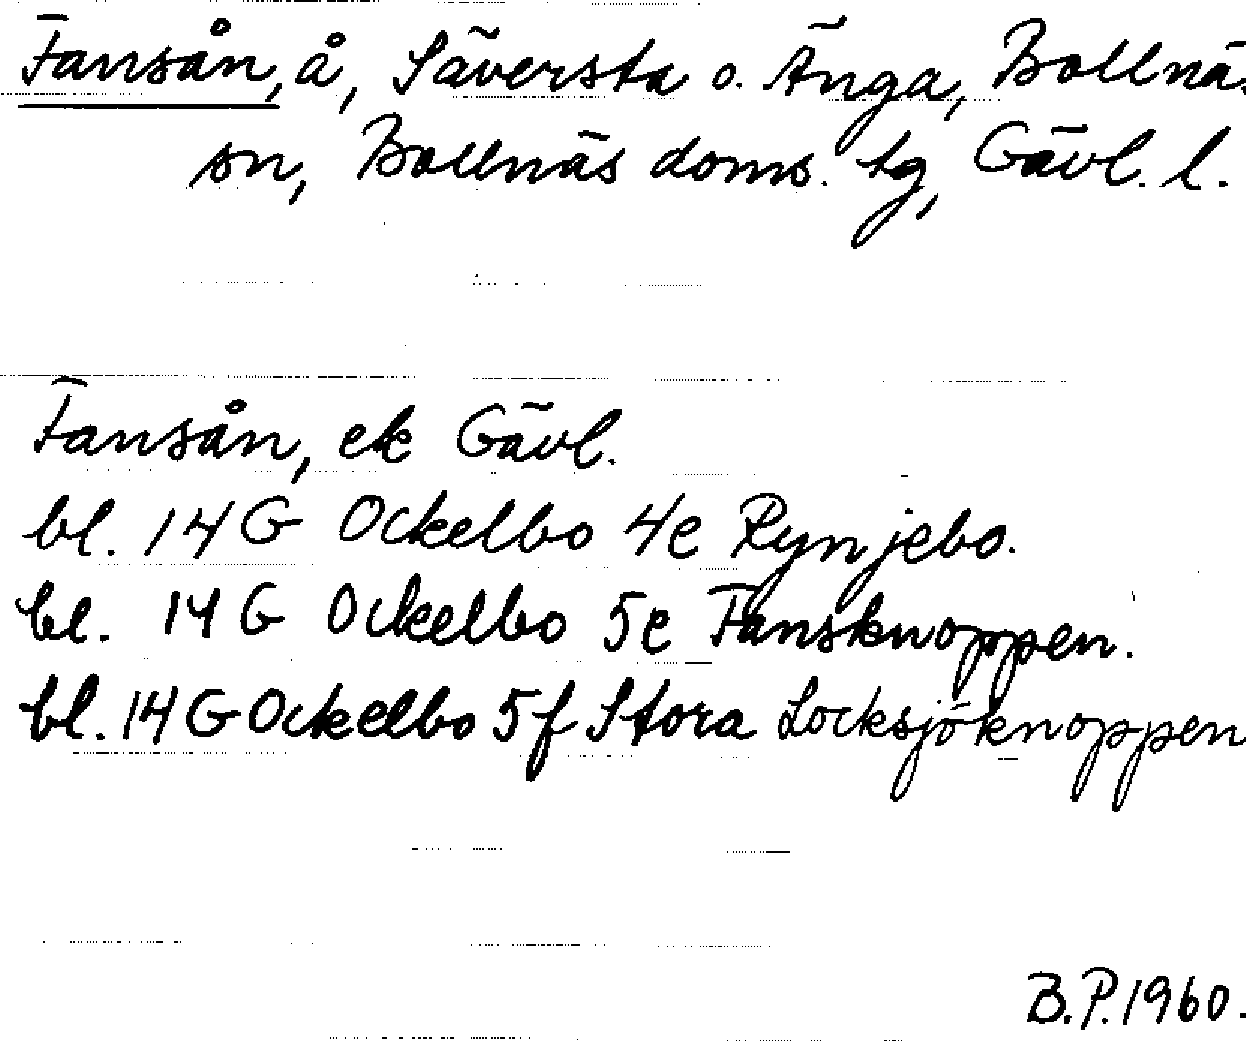 Fansån, å, Säversta o. Änga, Bollnäs
sn, Bollnäs doms. tg, Gävl. l.
Fansån, ek Gävl.
bl. 14 G Ockelbo 4e Rynjebo.
bl. 14 G Ockelbo 5e Fansknoppen.
bl. 14 G Ockelbo 5f Stora Locksjöknoppen
B.P. 1960.